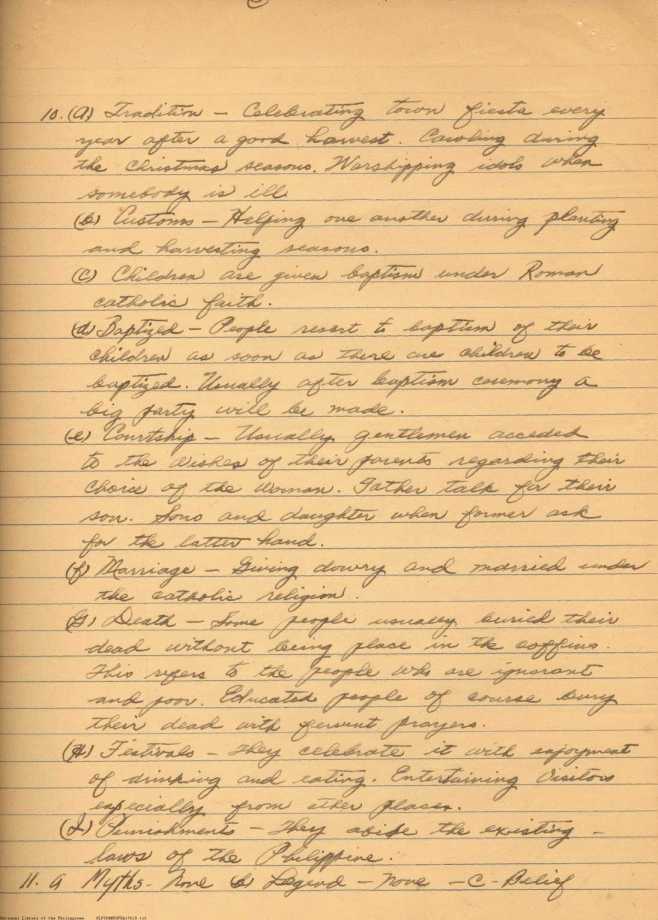 10. (A) Tradition — Celebrating town fiesta every
year after a good harvest. Caroling during
the Christmas seasons. Worshipping idols when
somebody is ill
(b) Customs — Helping one another during planting
and harvesting seasons.
(c) Children are given baptism under Roman
catholic faith.
(d) Baptized — People resort to baptism of their
children as soon as there are children to be
baptized. Usually after baptism ceremony a
big party will be made.
(e) Courtship — Usually gentlemen acceded
to the wishes of their parents regarding their
choice of the woman. Father talk for their
son. Sons and daughter when former ask
for the latter hand.
(f) Marriage — Giving dowry and married under
the catholic religion.
(G) Death — Some people usually buried their
dead without being place in the coffins.
This refers to the people who are ignorant
and poor. Educated people of course bury
their dead with fervent prayers.
(H) Festivals — They celebrate it with enjoyment
of drinking and eating. Entertaining visitors
especially from other places.
(I) Punishments — They abide the existing —
laws of the Philippine.
11. a Myths - None (b) Legend — none — C - Belief
National Library of the Philippines